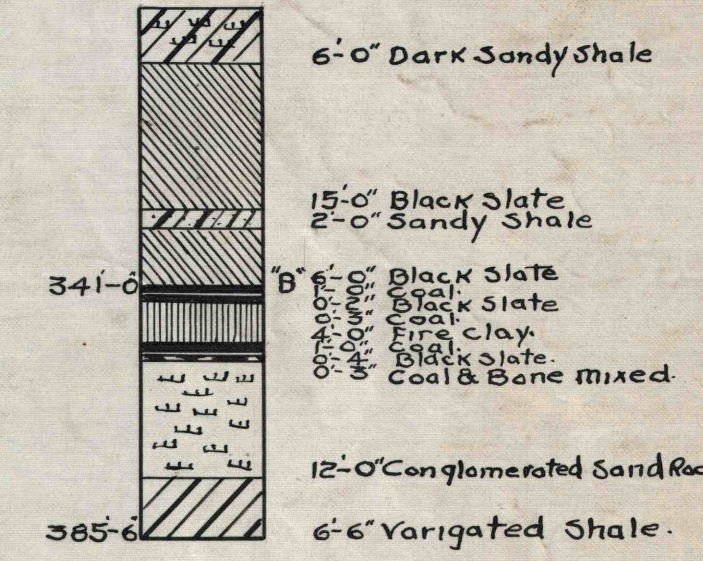 6'-0" Dark Sandy Shale
15'-0" Black Slate
2'-0" Sandy Shale
341'-0 "B" 6'-0" Black Slate
1'-0" Coal.
0'-2" Black Slate
0'-3" Coal.
4'-0" Fire Clay.
1'-0" Coal.
0'-4" Black Slate.
0'-3" Coal & Bone mixed.
12'-0" Conglomerated Sand Roc
385'-6 6'-6" Varigated Shale.